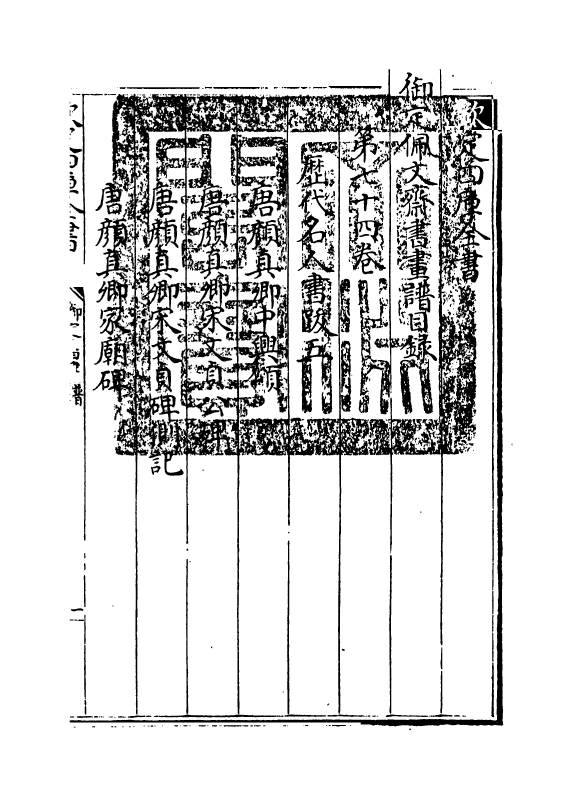 欽定四庫全書
御定佩文齋書畫譜目録
第七十四卷
歴代名人書跋五
唐顔真卿中興頌
唐顔真卿宋文貞公碑
唐顔真卿宋文貞碑側記
唐顔真卿家廟碑